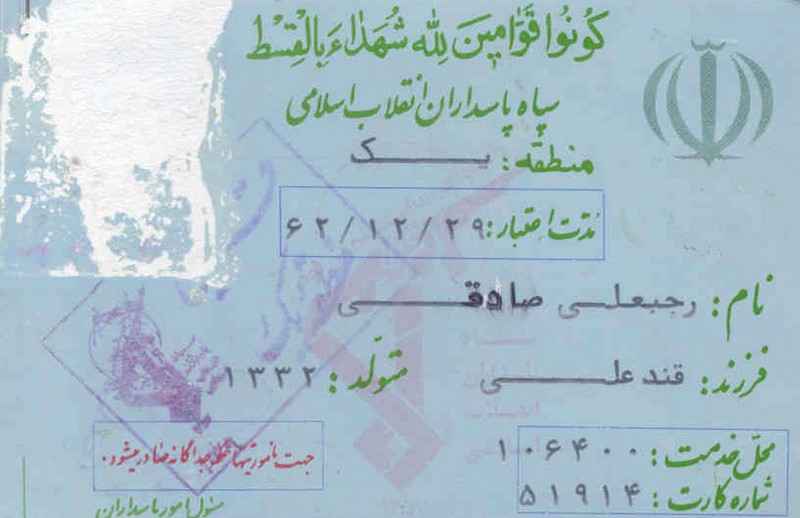 كُونُوا قَوَّامِينَ لِلّه شُهَدَاءَ بِالْقِسْط
سپاه پاسداران انقلاب اسلامی
منطقه: یک
مدّت اعتبار: ۶۲/۱۲/۲۹
نام: رجبعلی صادقی
فرزند: قندعلی متولّد: ۱۳۳۲
محلّ خدمت: ۱۰۶۴۰۰
شماره کارت: ۵۱۹۱۴
جهت مأموریتها جداگانه صادر میشود.
مسئول امور پاسداران